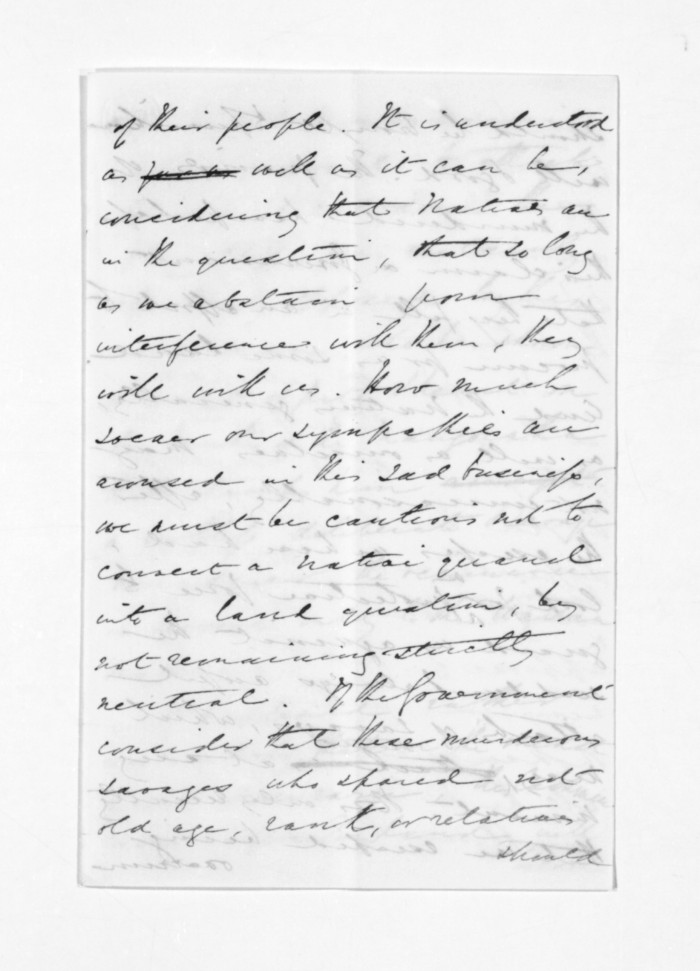 of their people. It is understood
as well as it can be,
considering that Natives are
in the question, that so long
as we abstain from
interference with them, they
will with us. How much
soever our sympathies are
aroused in this sad business,
we must be cautious not to
convert a native quarrel
into a land question, by
not remaining strictly
neutral. If the Government
consider that these murderous
savages who spared not
old age, rank, or relations
should